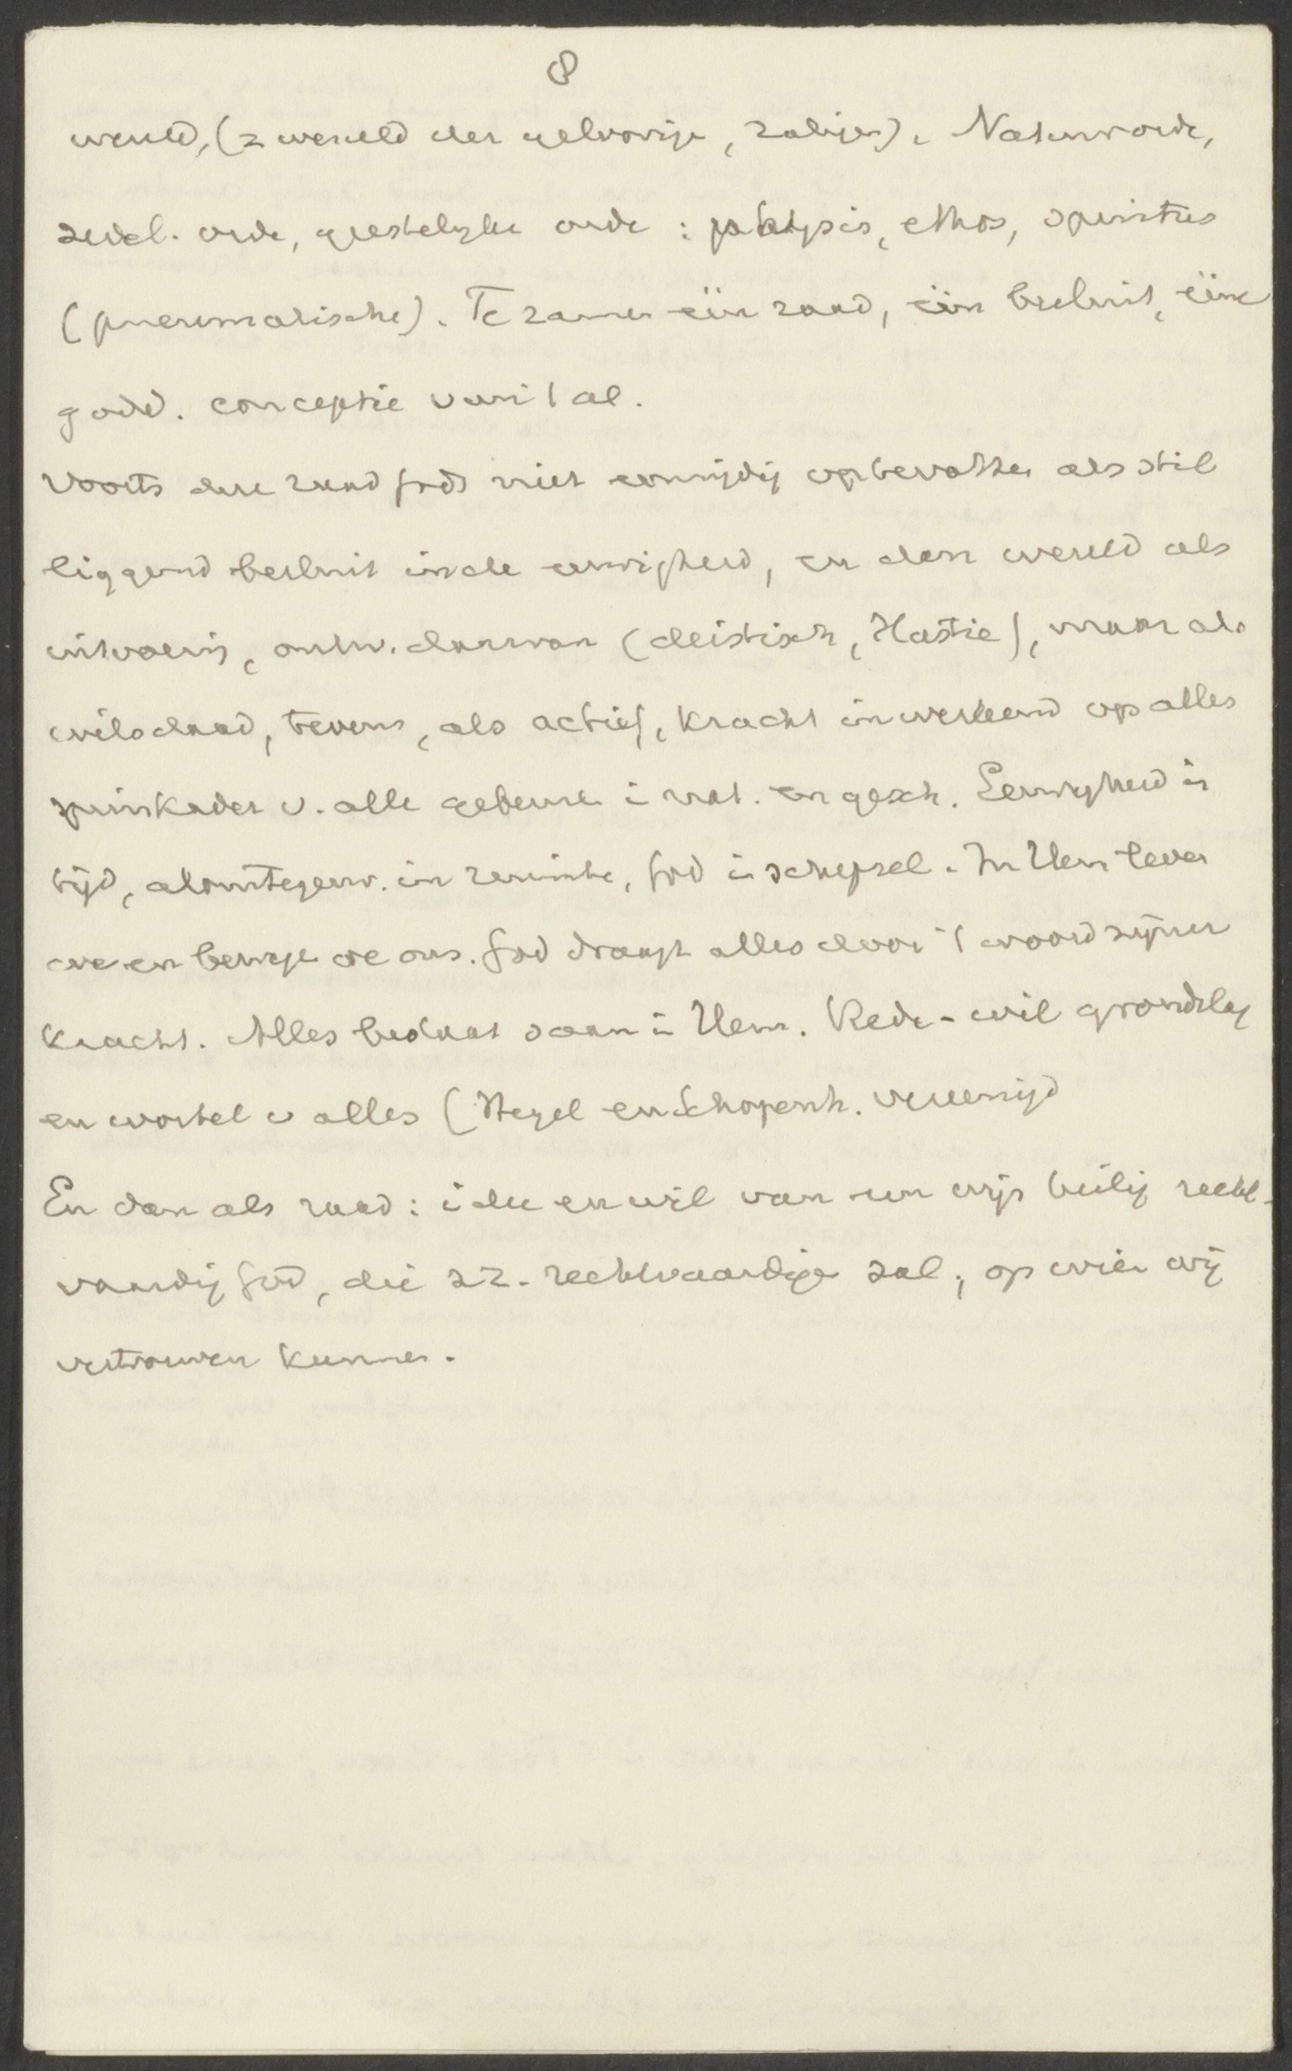 8
wereld, (z wereld der geloovige, zalige). Natuurorde,
zedel. orde, geestelyke orde : physis, ethos, spiritus
(pneumatische). Te zamen één raad, één besluit, ééne
godd. conceptie van 't al.
Voorts deze raad Gods niet eenzijdig opbevatten als stil
liggend besluit in de eeuwigheid, en den wereld als
uitvoering, ontw. daarvan (deistisch, Hastie), maar als
wilsdaad, tevens, als actief, kracht inwerkend op alles
v. alle gebeuren i nat. en gesch. Eeuwigheid in
tijd, alomtegenw. in ruimte, God in schepsel. In Hem leven
we en bewege we ons. God draagt alles door 't woord zijner
kracht. Alles bestaat saam in Hem. Rede-wil grondslag
en wortel v alles (Hegel en Schopenh. vereenigd
En dan als raad : idee en wil van een wijs heilig recht-
vaardig God, die zz. rechtvaardige zal, op wien wij
vertrouwen kunnen.